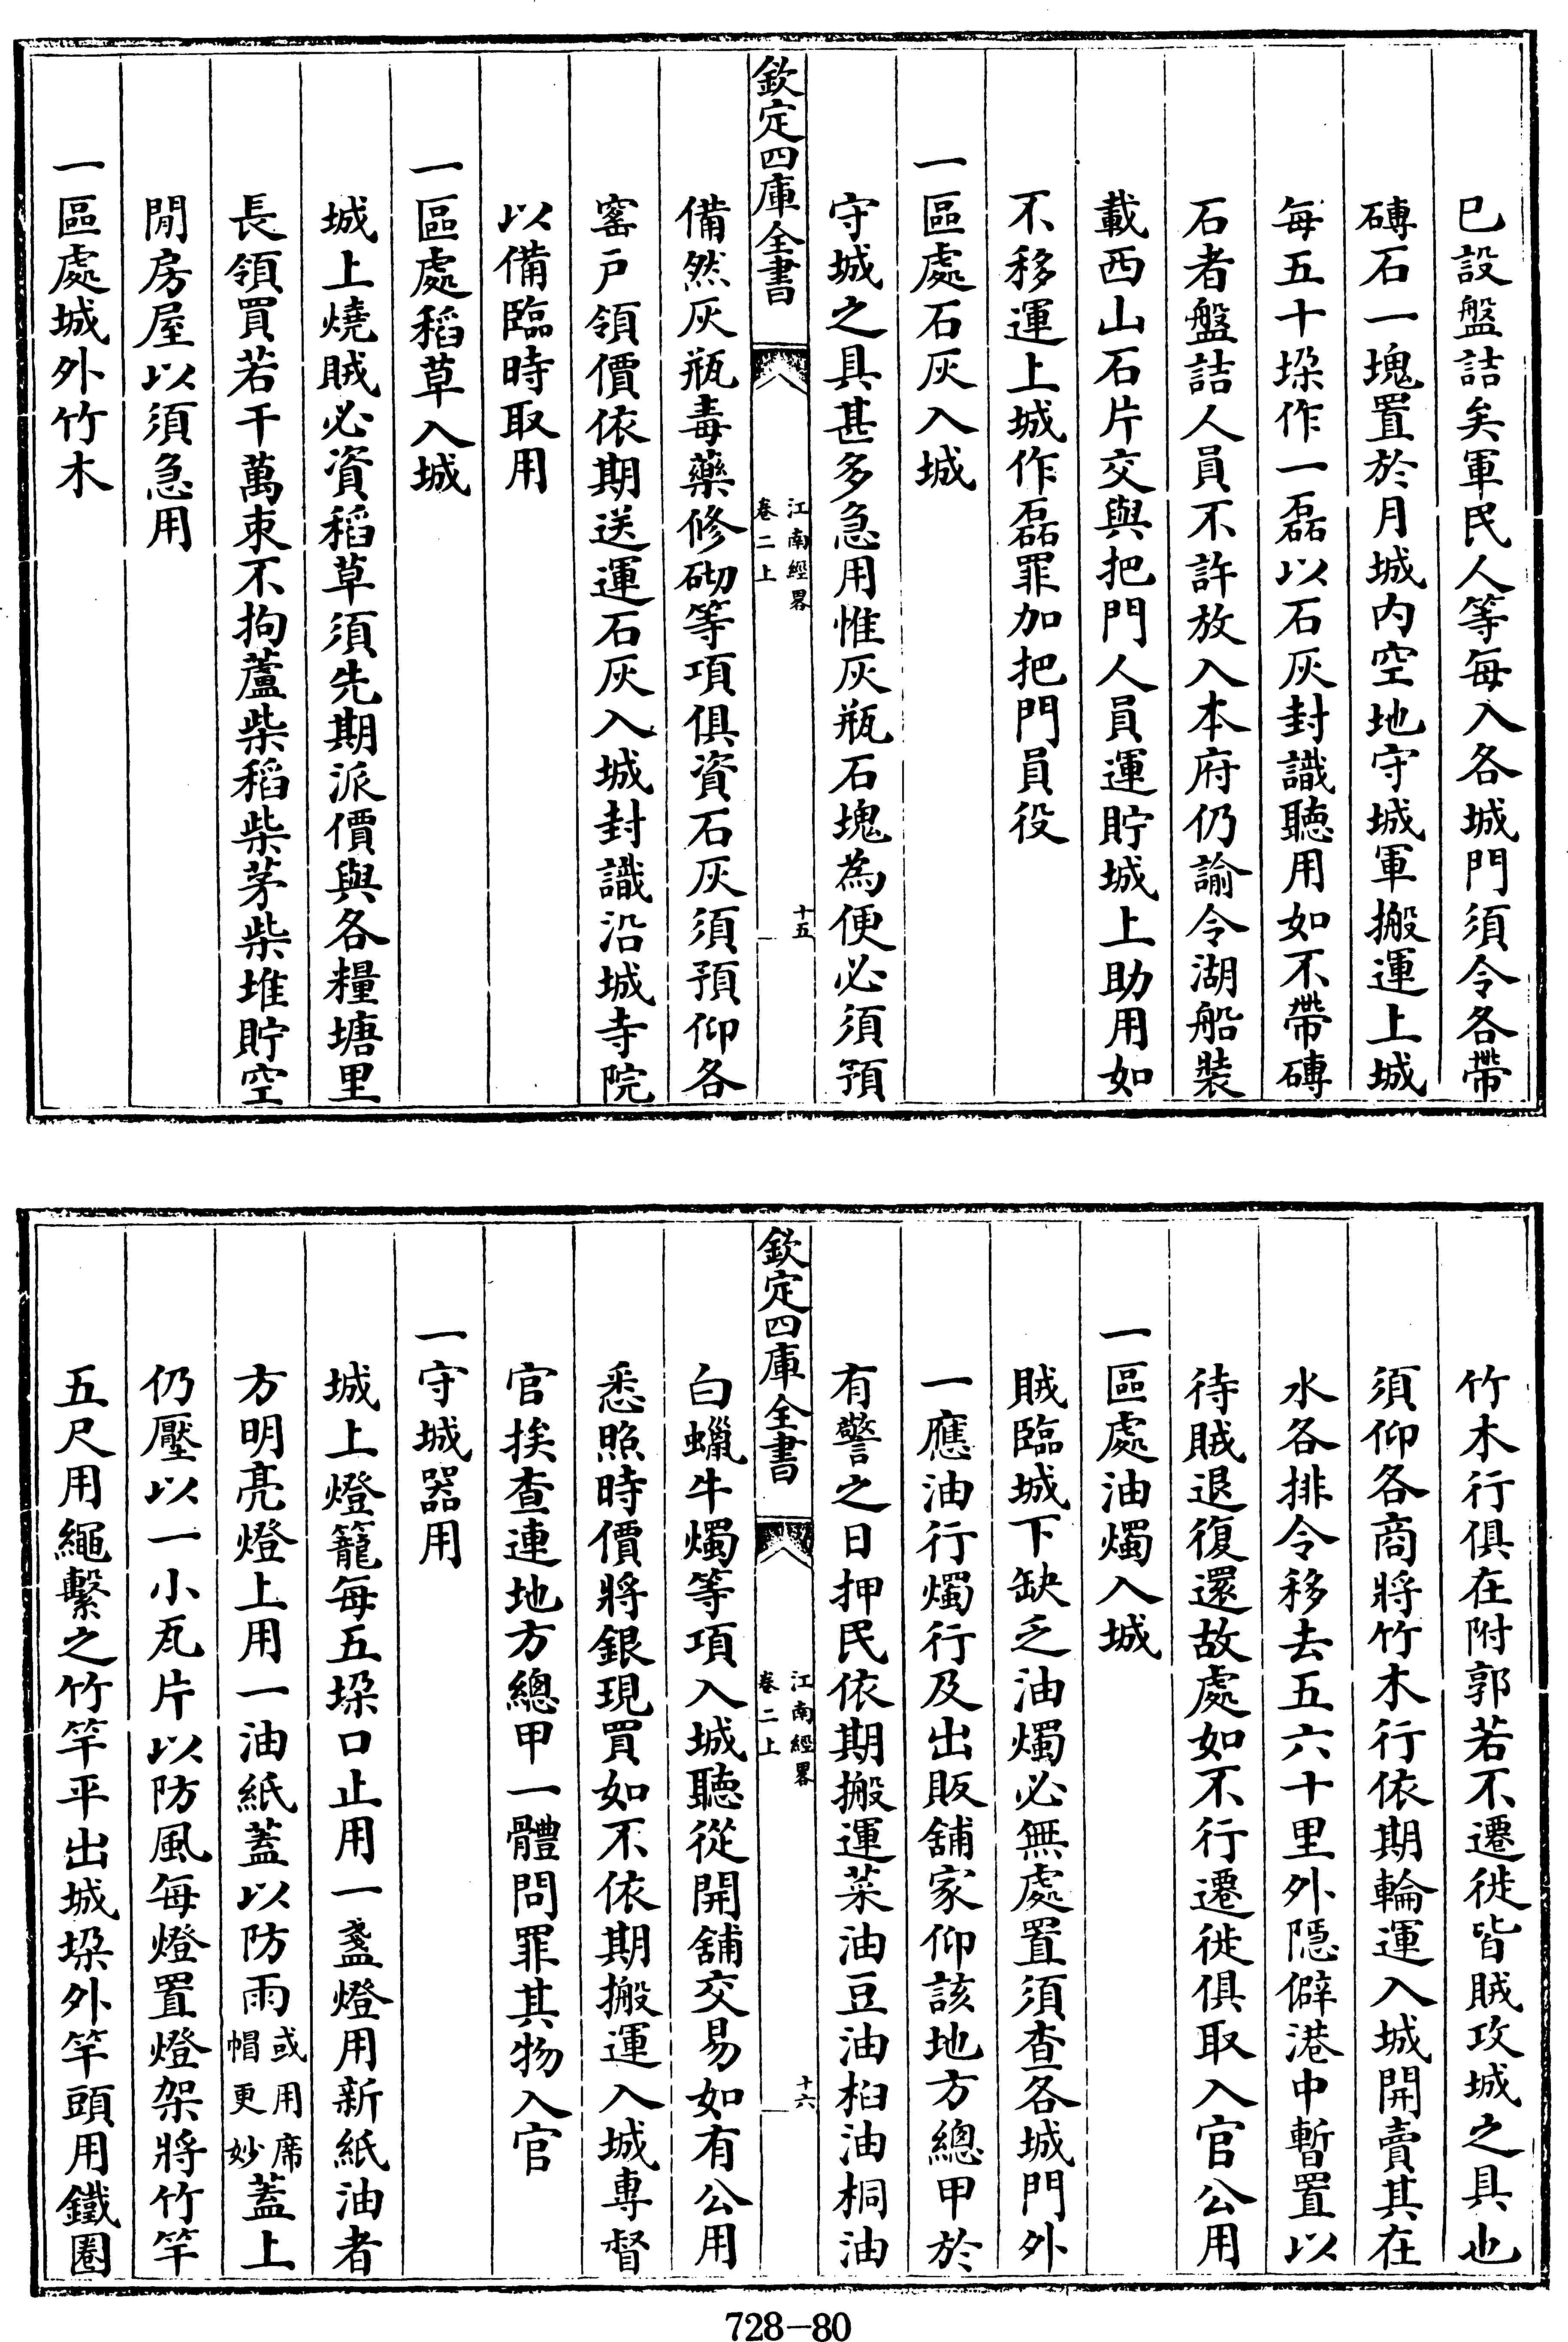 已設盤詰矣軍民人等每入各城門須令各帶
磚石一塊置於月城内空地守城軍搬運上城
每五十垜作一磊以石灰封識聽用如不帶磚
石者盤詰人員不許放入本府仍諭令湖船裝
載西山石片交與把門人員運貯城上助用如
不移運上城作磊罪加把門員役
一區處石灰入城
守城之具甚多急用惟灰瓶石塊為便必須預
欽定四庫全書
江南經畧
卷二上
十五
備然灰瓶毒藥修砌等項俱資石灰須預仰各
窰戸領價依期送運石灰入城封識沿城寺院
以備臨時取用
一區處稻草入城
城上燒賊必資稻草須先期派價與各糧塘里
長領買若干萬束不拘蘆柴稻柴茅柴堆貯空
閒房屋以須急用
一區處城外竹木
竹木行俱在附郭若不遷徙皆賊攻城之具也
須仰各商將竹木行依期輪運入城開賣其在
水各排令移去五六十里外隱僻港中暫置以
待賊退復還故處如不行遷徙俱取入官公用
一區處油燭入城
賊臨城下缺乏油燭必無處置須查各城門外
一應油行燭行及出販舖家仰該地方總甲於
有警之日押民依期搬運菜油豆油桕油桐油
欽定四庫全書
江南經畧
卷二上
十六
白蠟牛燭等項入城聽從開舖交易如有公用
悉照時價將銀現買如不依期搬運入城專督
官挨查連地方總甲一體問罪其物入官
一守城器用
城上燈籠每五垜口止用一盞燈用新紙油者
方明亮燈上用一油紙蓋以防雨或用席帽更妙蓋上
仍壓以一小瓦片以防風每燈置燈架將竹竿
五尺用繩繫之竹竿平出城垜外竿頭用鐵圈
728-80